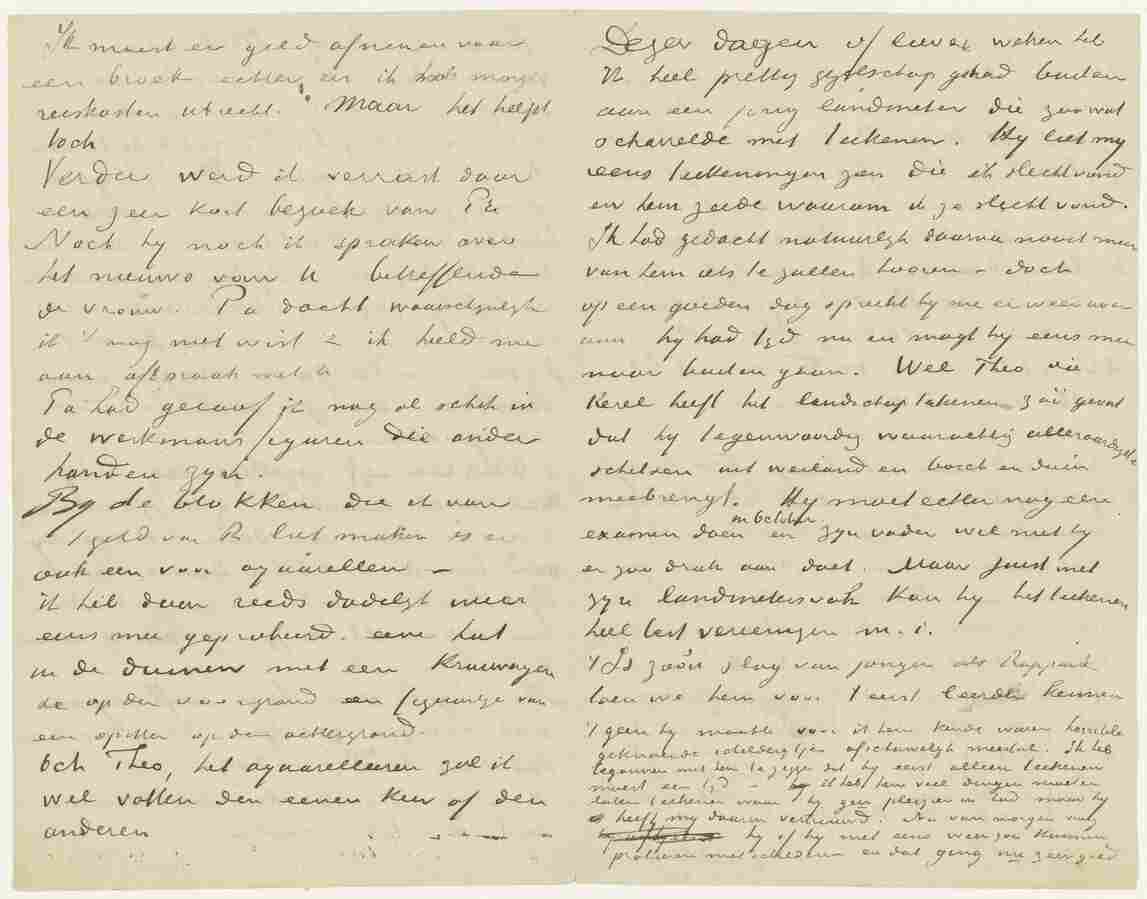 Ik moest er geld afnemen voor
een broek echter en ik heb morgen
reiskosten utrecht. Maar het helpt
toch
Verder werd ik verrast door
een zeer kort bezoek van Pa
Noch hy noch ik spraken over
het nieuws van U betreffende
de vrouw. Pa dacht waarschynlyk
ik 't nog niet wist & ik hield me
aan afspraak met U
Pa had geloof ik nog al schik in
de werkmansfiguren die onder
handen zyn.
By de blokken die ik van
't geld van R liet maken is er
ook een voor aquarellen –
ik heb daar reeds dadelyk weer
eens mee geprobeerd. een hut
in de duinen met een Kruiwagen
&c op den voorgrond en figuurtje van
een spitter op den achtergrond.
Och Theo, het aquarelleeren zal ik
wel vatten den eenen keer of den
anderen
Dezer dagen of liever weken heb
ik heel prettig gezelschap gehad buiten
aan een jong landmeter die zoo wat
scharrelde met teekenen. Hy liet my
eens teekeningen zien die ik slecht vond
en hem zeide waarom ik ze slecht vond.
Ik had gedacht natuurlyk daarna nooit meer
van hem iets te zullen hooren – doch
op een goeden dag spreekt hy me er weer over
aan hy had tyd nu en mogt hy eens mee
naar buiten gaan. Wel Theo die
Kerel heeft het landschapteekenen zóó gevat
dat hy tegenwoordig waarachtig alleraardigste
schetsen uit weiland en bosch en duin
meebrengt. Hy moet echter nog een
examen doen en zyn vader wil niet hy
er zoo druk aan doet. Maar juist met
zyn landmetersvak Kan hy het teekenen
heel best vereenigen m.i.
't Is zoo'n slag van jongen als Rappard
toen we hem voor 't eerst leerden Kennen
't geen hy maakte voor ik hem Kende waren horrible
geknoeide schilderytjes afschuwelyk meestal. Ik heb
begonnen met hem te zeggen dat hy eerst alleen teekenen
moest een tyd – en ik heb hem veel dingen moeten
laten teekenen waar hy geen plezier in had maar hy
heeft my daarin vertrouwd. Nu van morgen vroeg
hy of hy niet eens weer zou Kunnen
probeeren met schilderen – en dat ging nu zeer goed